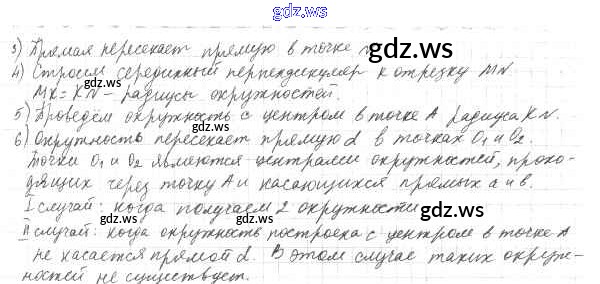 gdz.ws
3) Прямая пересекает прямую в точке
gdz.ws
4) Строим серединный перпендикуляр к отрезку MN
MK = KN – радиусы окружностей.
gdz.ws
5) Проведём окружность с центром в точке А радиуса KN.
6) Окружность пересекает прямую d в точках O₁ и O₂.
Точки O₁ и O₂ являются центрами окружностей, прохо-
gdz.ws
дящих через точку А и касающихся прямых a и b.
I случай: когда получаем 2 окружности
gdz.ws
gdz.ws
II случай: когда окружность построена с центром в точке А
не касается прямой d. В этом случае таких окруж-
ностей не существует.
gdz.ws